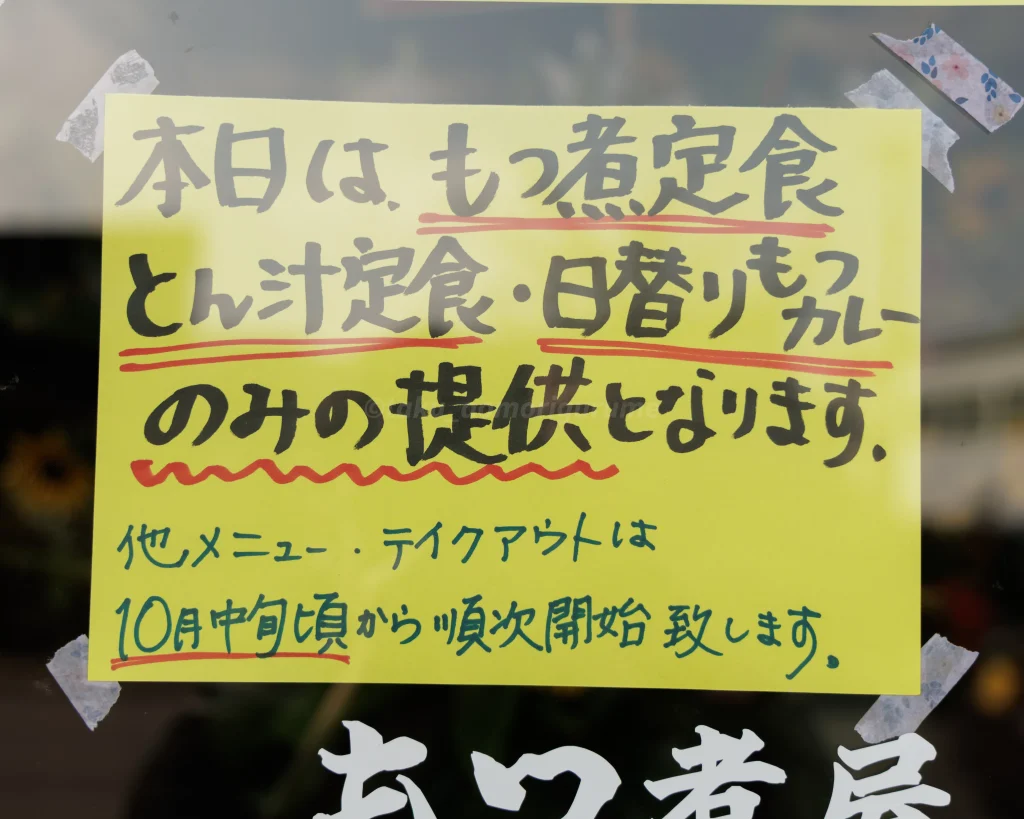 本日は、もつ煮定食
とん汁定食・日替りもつカレー
のみの提供となります.
他メニュー・テイクアウトは
10月中旬頃から順次開始致します。
もつ煮屋